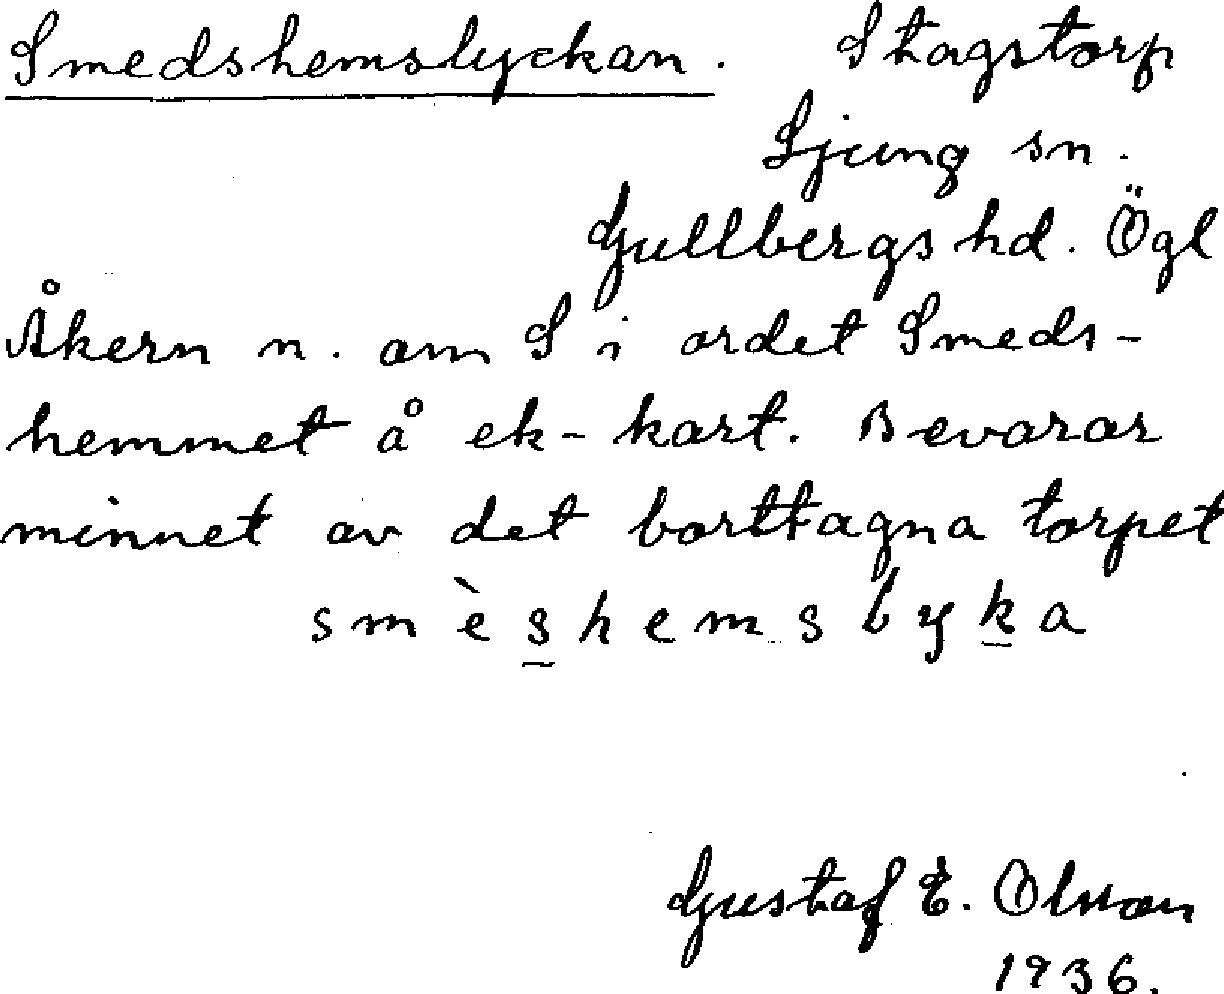 Smedshemslyckan. Stagstorp
Ljung sn.
Gullbergs hd. Ögl
Åkern n. om S i ordet Smeds-
hemmet å ek-kart. Bevarar
minnet av det borttagna torpet
smèshemslyka
Gustaf E. Olsson
1936.